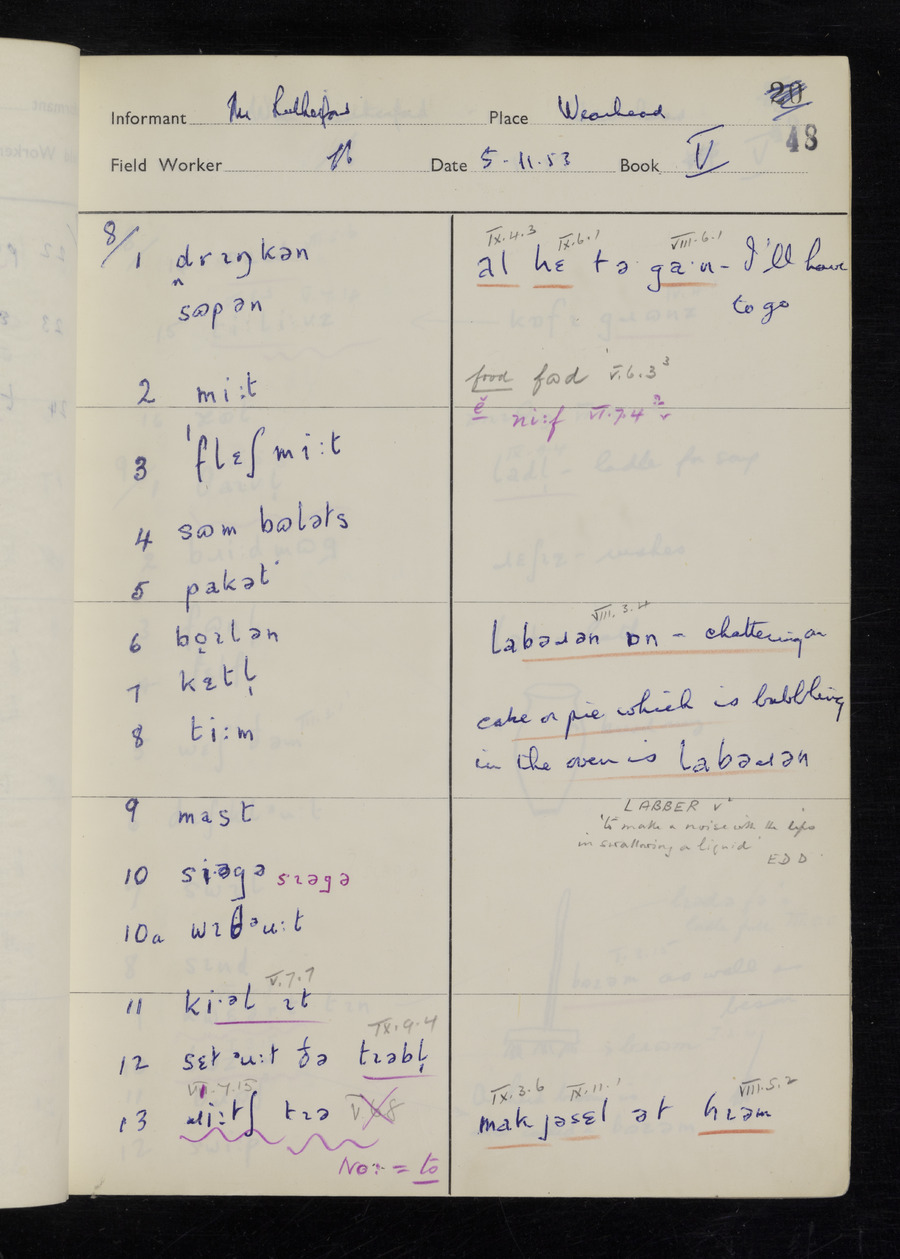 20
48
Informant Mr Rutherford Place Wearhead
Field Worker Date 5-11-53 Book V
8/1 drɪŋkən
sɷpən
2 mi:t
3 'flɛʃmi:t
4 sɷm bɷləts
5 pakət
6 bɔɪlən
7 kɛtl̩
8 ti:m
9 mast
10 siəgə sɪəgə
10a wɪðəu:t
11 ki·əl ɪt V.7.7
12 sɛt əu:t ðə tɪəbl̩ IX.9.4
13 ɹi:tʃ tɪə VII.7.15
No: = to
IX.4.3 IX.6.1 VIII.6.1
al hɛ tə ga·n - I'll have
to go
food fɷd V.6.3
ni:f VI.7.4
VIII.3.4
labəɹən ɒn - chattering on
cake or pie which is bubbling
in the oven is labəɹən
LABBER v
'to make a noise with the lips
in swallowing a liquid'
EDD
IX.3.6 IX.11.1 VIII.5.2
mak jəsɛl ət hɪəm